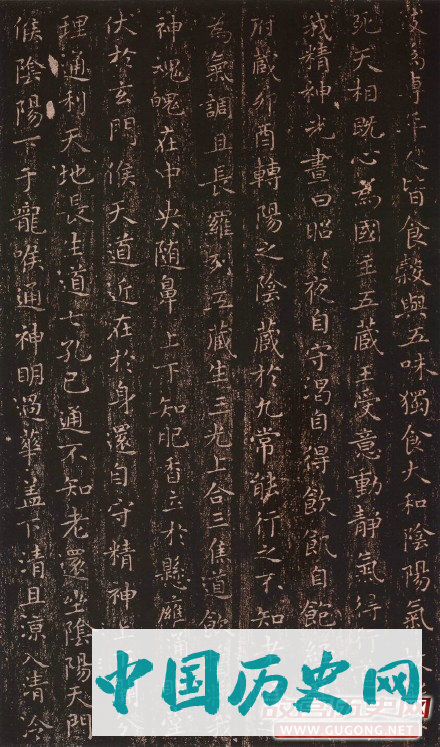 專年人皆食穀與五味獨食大和陰陽氣
死天相既心為國主五藏王受意動靜氣得行
我精神光晝日昭〻夜自守渴自得飲飢自飽
附藏卯酉轉陽之陰藏於九常能行之不知老
為氣調且長羅列五藏生三光上合三焦道飲
神魂魄在中央随鼻上下知肥香立於懸膺通
伏於玄門候天道近在於身還自守精神上
理通利天地長生道七孔已通不知老還坐陰陽天門
候陰陽下于龍喉通神明過華蓋下清且涼入清泠
中国历史网
WWW.GUGONG.NET